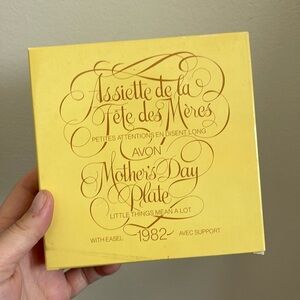 Assiette de la
Fête des Mères
PETITES ATTENTIONS EN DISENT LONG
AVON
Mother's Day
Plate
LITTLE THINGS MEAN A LOT
WITH EASEL 1982 AVEC SUPPORT